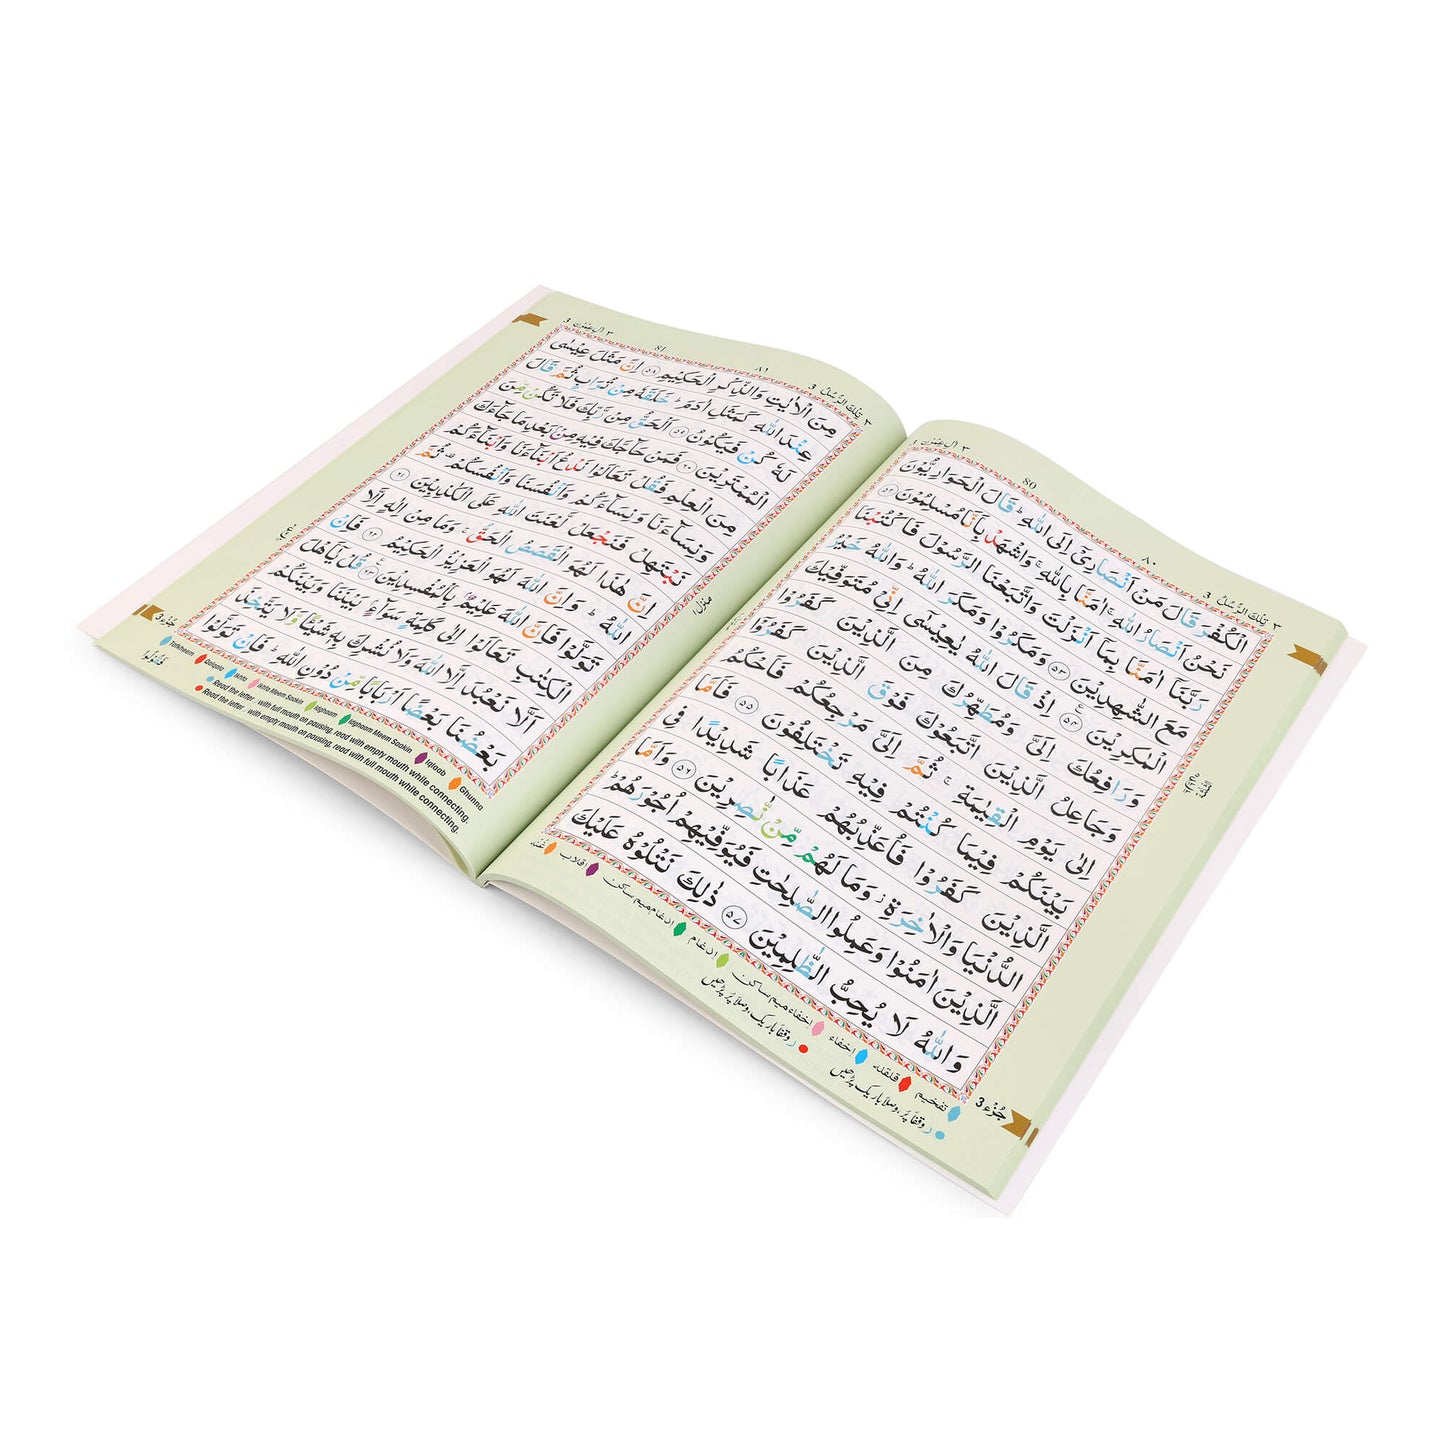 ٣ تِلْكَ الرُّسُلُ 3
٨٠
80
٣ اٰلِ عِمْرٰن
الْكُفْرَ قَالَ مَنْ اَنْصَارِیْۤ اِلَی اللّٰهِ ؕ قَالَ الْحَوَارِیُّوْنَ
نَحْنُ اَنْصَارُ اللّٰهِ ۚ اٰمَنَّا بِاللّٰهِ ۚ وَاشْهَدْ بِاَنَّا مُسْلِمُوْنَ ۵۲
رَبَّنَاۤ اٰمَنَّا بِمَاۤ اَنْزَلْتَ وَاتَّبَعْنَا الرَّسُوْلَ فَاكْتُبْنَا
مَعَ الشّٰهِدِیْنَ ۵۳ وَمَكَرُوْا وَمَكَرَ اللّٰهُ ؕ وَاللّٰهُ خَیْرُ
الْمٰكِرِیْنَ ۵۴ اِذْ قَالَ اللّٰهُ یٰعِیْسٰۤی اِنِّیْ مُتَوَفِّیْكَ
وَرَافِعُكَ اِلَیَّ وَمُطَهِّرُكَ مِنَ الَّذِیْنَ كَفَرُوْا
وَجَاعِلُ الَّذِیْنَ اتَّبَعُوْكَ فَوْقَ الَّذِیْنَ كَفَرُوْۤا
اِلٰی یَوْمِ الْقِیٰمَةِ ۚ ثُمَّ اِلَیَّ مَرْجِعُكُمْ فَاَحْكُمُ
بَیْنَكُمْ فِیْمَا كُنْتُمْ فِیْهِ تَخْتَلِفُوْنَ ۵۵ فَاَمَّا
الَّذِیْنَ كَفَرُوْا فَاُعَذِّبُهُمْ عَذَابًا شَدِیْدًا فِی
الدُّنْیَا وَالْاٰخِرَةِ ؗ وَمَا لَهُمْ مِّنْ نّٰصِرِیْنَ ۵۶ وَاَمَّا
الَّذِیْنَ اٰمَنُوْا وَعَمِلُوا الصّٰلِحٰتِ فَیُوَفِّیْهِمْ اُجُوْرَهُمْ ؕ
وَاللّٰهُ لَا یُحِبُّ الظّٰلِمِیْنَ ۵۷ ذٰلِكَ نَتْلُوْهُ عَلَیْكَ
جُزْء 3
تفخیم قلقلہ اخفاء اخفاء میم ساکن ادغام ادغام میم ساکن اقلاب غنہ
ر وقفاً پُر، وصلاً باریک پڑھیں ر وقفاً باریک، وصلاً پُر پڑھیں
٣ تِلْكَ الرُّسُلُ 3
٨١
81
٣ اٰلِ عِمْرٰن 3
مِنَ الْاٰیٰتِ وَالذِّكْرِ الْحَكِیْمِ ۵۸ اِنَّ مَثَلَ عِیْسٰی
عِنْدَ اللّٰهِ كَمَثَلِ اٰدَمَ ؕ خَلَقَهٗ مِنْ تُرَابٍ ثُمَّ قَالَ
لَهٗ كُنْ فَیَكُوْنُ ۵۹ اَلْحَقُّ مِنْ رَّبِّكَ فَلَا تَكُنْ مِّنَ
الْمُمْتَرِیْنَ ۶۰ فَمَنْ حَآجَّكَ فِیْهِ مِنْۢ بَعْدِ مَا جَآءَكَ
مِنَ الْعِلْمِ فَقُلْ تَعَالَوْا نَدْعُ اَبْنَآءَنَا وَاَبْنَآءَكُمْ
وَنِسَآءَنَا وَنِسَآءَكُمْ وَاَنْفُسَنَا وَاَنْفُسَكُمْ ۫ ثُمَّ
نَبْتَهِلْ فَنَجْعَلْ لَّعْنَتَ اللّٰهِ عَلَی الْكٰذِبِیْنَ ۶۱
اِنَّ هٰذَا لَهُوَ الْقَصَصُ الْحَقُّ ۚ وَمَا مِنْ اِلٰهٍ اِلَّا
اللّٰهُ ؕ وَاِنَّ اللّٰهَ لَهُوَ الْعَزِیْزُ الْحَكِیْمُ ۶۲ فَاِنْ
تَوَلَّوْا فَاِنَّ اللّٰهَ عَلِیْمٌۢ بِالْمُفْسِدِیْنَ ۶۳ قُلْ یٰۤاَهْلَ
الْكِتٰبِ تَعَالَوْا اِلٰی كَلِمَةٍ سَوَآءٍۭ بَیْنَنَا وَبَیْنَكُمْ
اَلَّا نَعْبُدَ اِلَّا اللّٰهَ وَلَا نُشْرِكَ بِهٖ شَیْـًٔا وَّلَا یَتَّخِذَ
بَعْضُنَا بَعْضًا اَرْبَابًا مِّنْ دُوْنِ اللّٰهِ ؕ فَاِنْ تَوَلَّوْا
منزل ۱
جُزْء 3
فَقُوْلُوا
Tafkheem Qalqala Ikhfa Ikhfa Meem Saakin Idghaam Idghaam Meem Saakin Iqlaab Ghunna
Read the letter ر with full mouth on pausing, read with empty mouth while connecting.
Read the letter ر with empty mouth on pausing, read with full mouth while connecting.